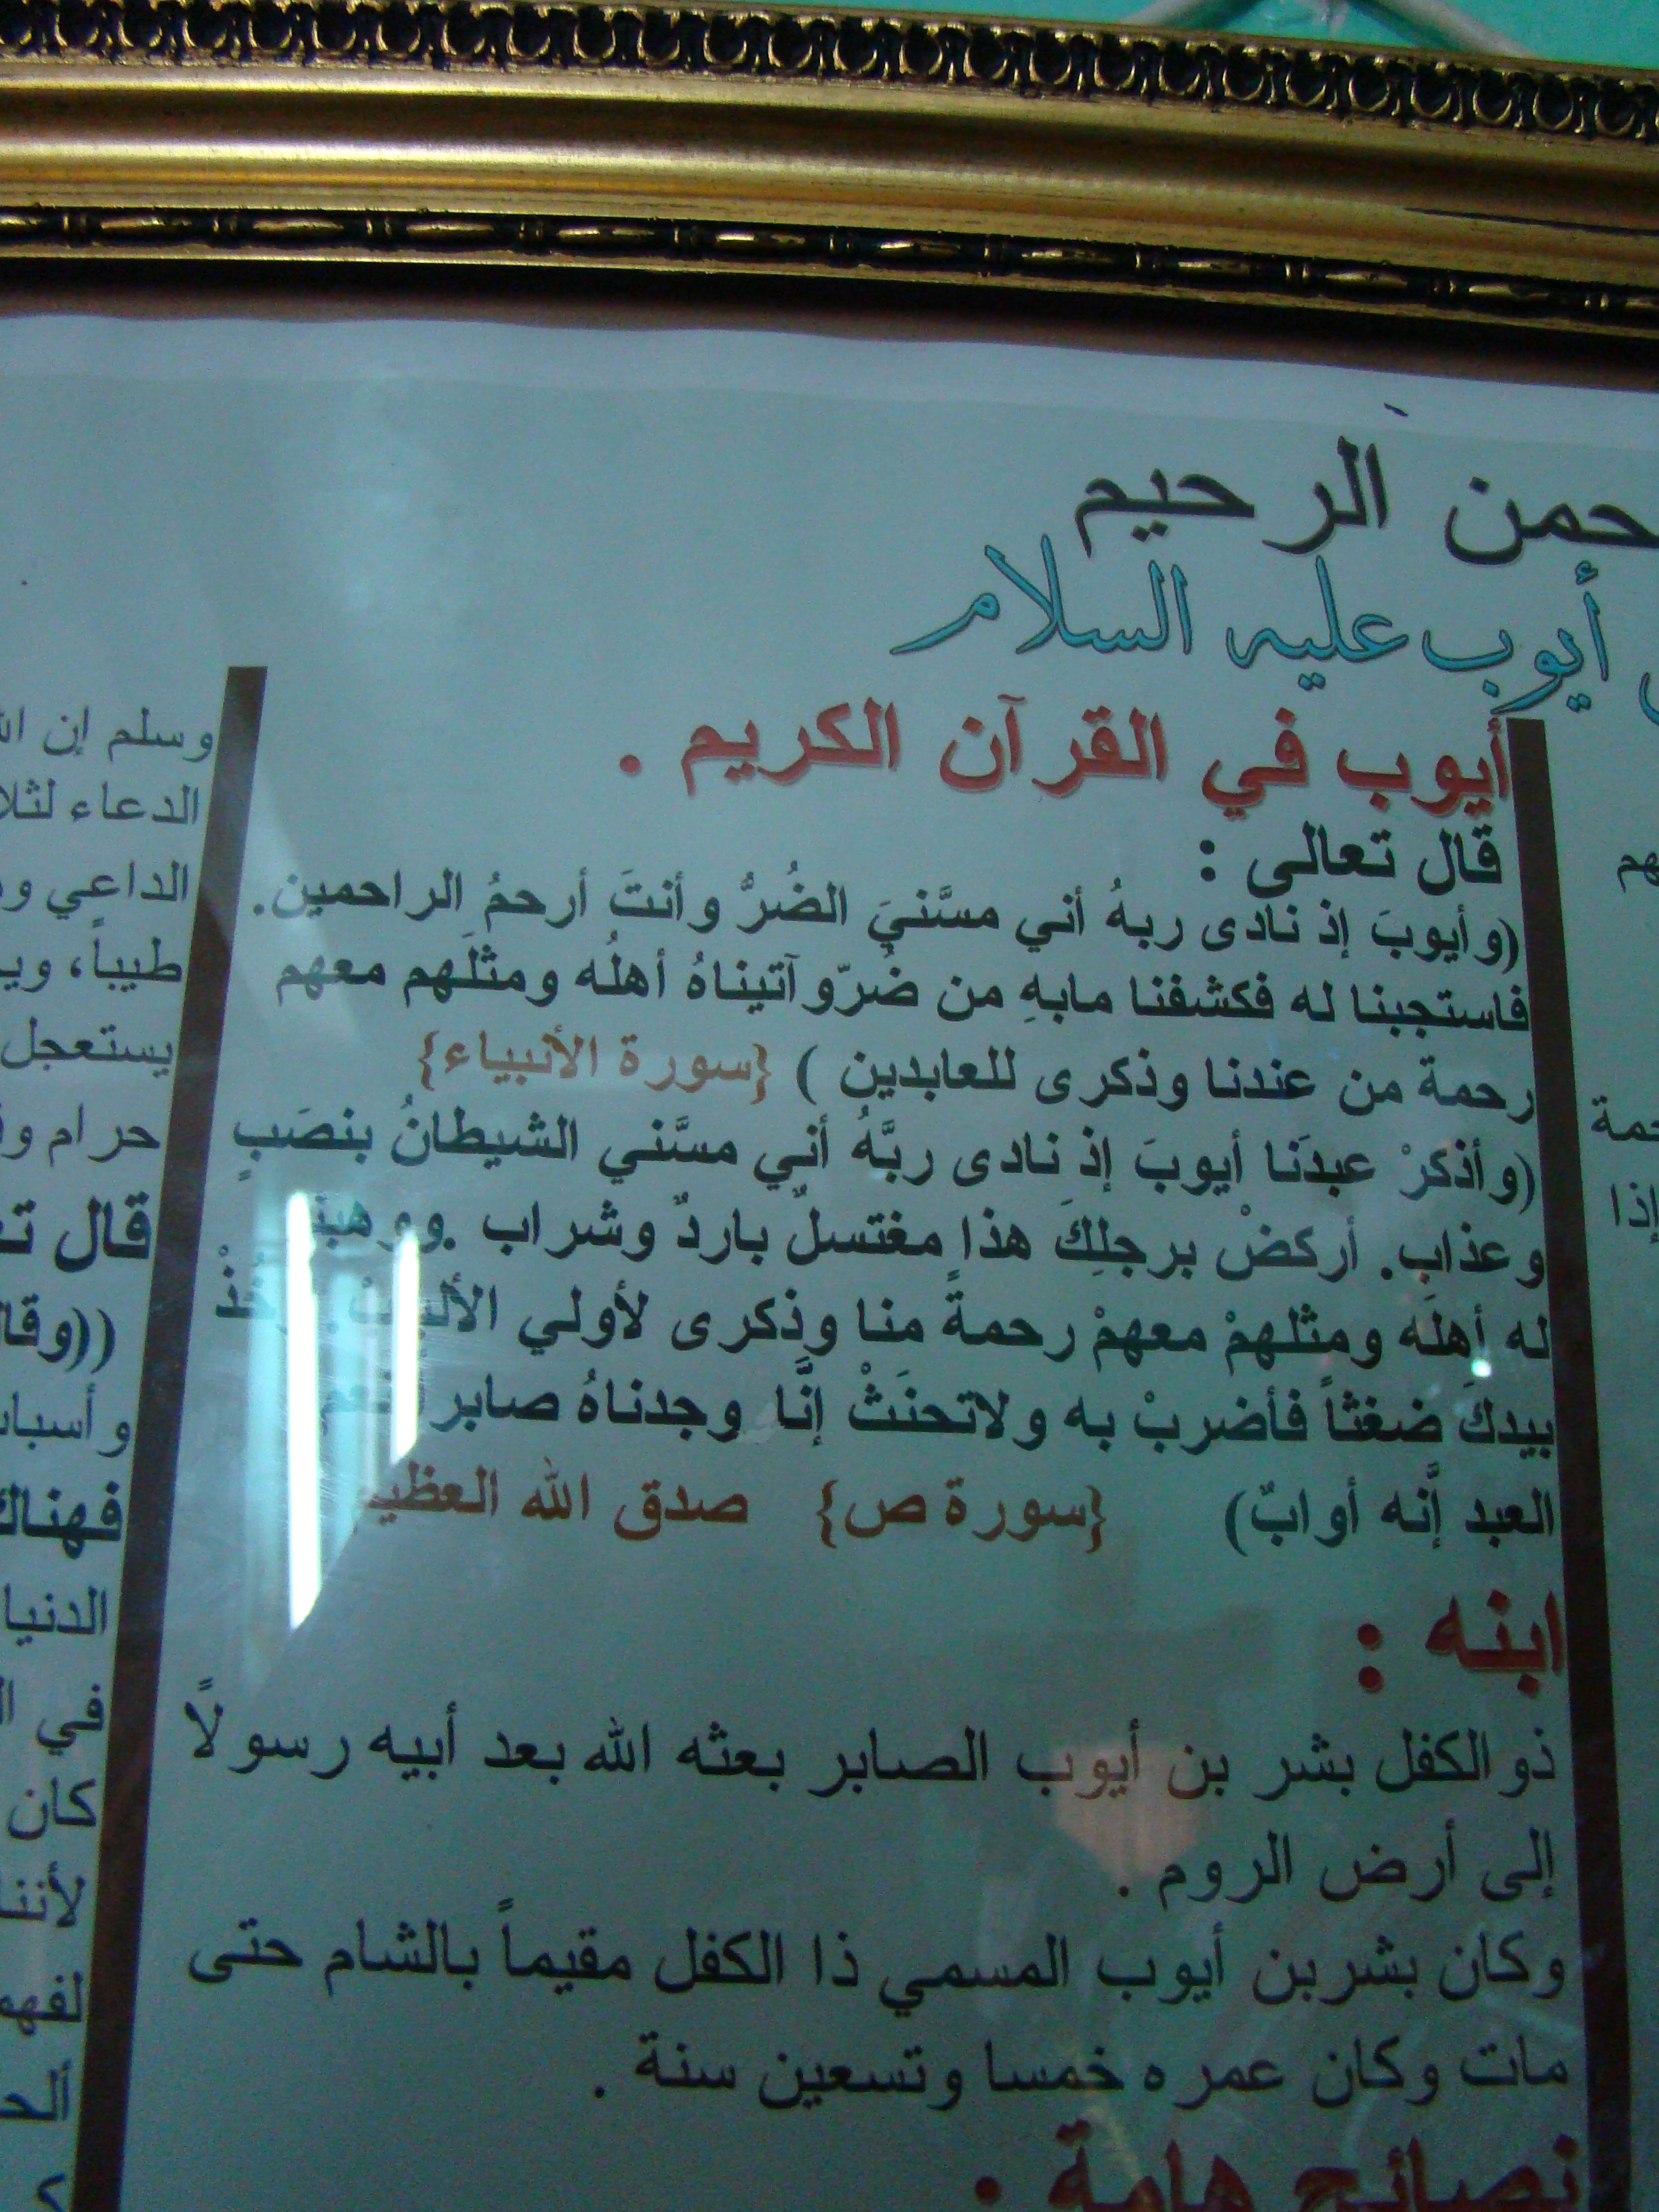 الرحيم
أيوب عليه السلام
أيوب في القرآن الكريم .
قال تعالى :
(وأيوبَ إذ نادى ربهُ أني مسَّنيَ الضُرُّ وأنتَ أرحمُ الراحمين.
فاستجبنا له فكشفنا مابهِ من ضُرّوآتيناهُ أهلُه ومثلَهم معهم
رحمة من عندنا وذكرى للعابدين ) {سورة الأنبياء}
(وأذكرْ عبدَنا أيوبَ إذ نادى ربَّهُ أني مسَّني الشيطانُ بنصَبٍ
وعذاب. أركضْ برجلِكَ هذا مغتسلٌ باردٌ وشراب .
له أهلَه ومثلهمْ معهمْ رحمةً منا وذكرى لأولي
بيدكَ ضغثاً فأضربْ به ولاتحنَثْ إنَّا وجدناهُ صابر
العبد إنَّه أوابٌ) {سورة ص} صدق الله العظيم
ابنه :
ذو الكفل بشر بن أيوب الصابر بعثه الله بعد أبيه رسولاً
إلى أرض الروم .
وكان بشربن أيوب المسمي ذا الكفل مقيماً بالشام حتى
مات وكان عمره خمسا وتسعين سنة .
نصائح هامة :
وسلم إن
الدعاء
الداعي
طيباً،
يستعجل
حرام
قال
وأسباب
فهناك
الدنيا
في
كان
إذا